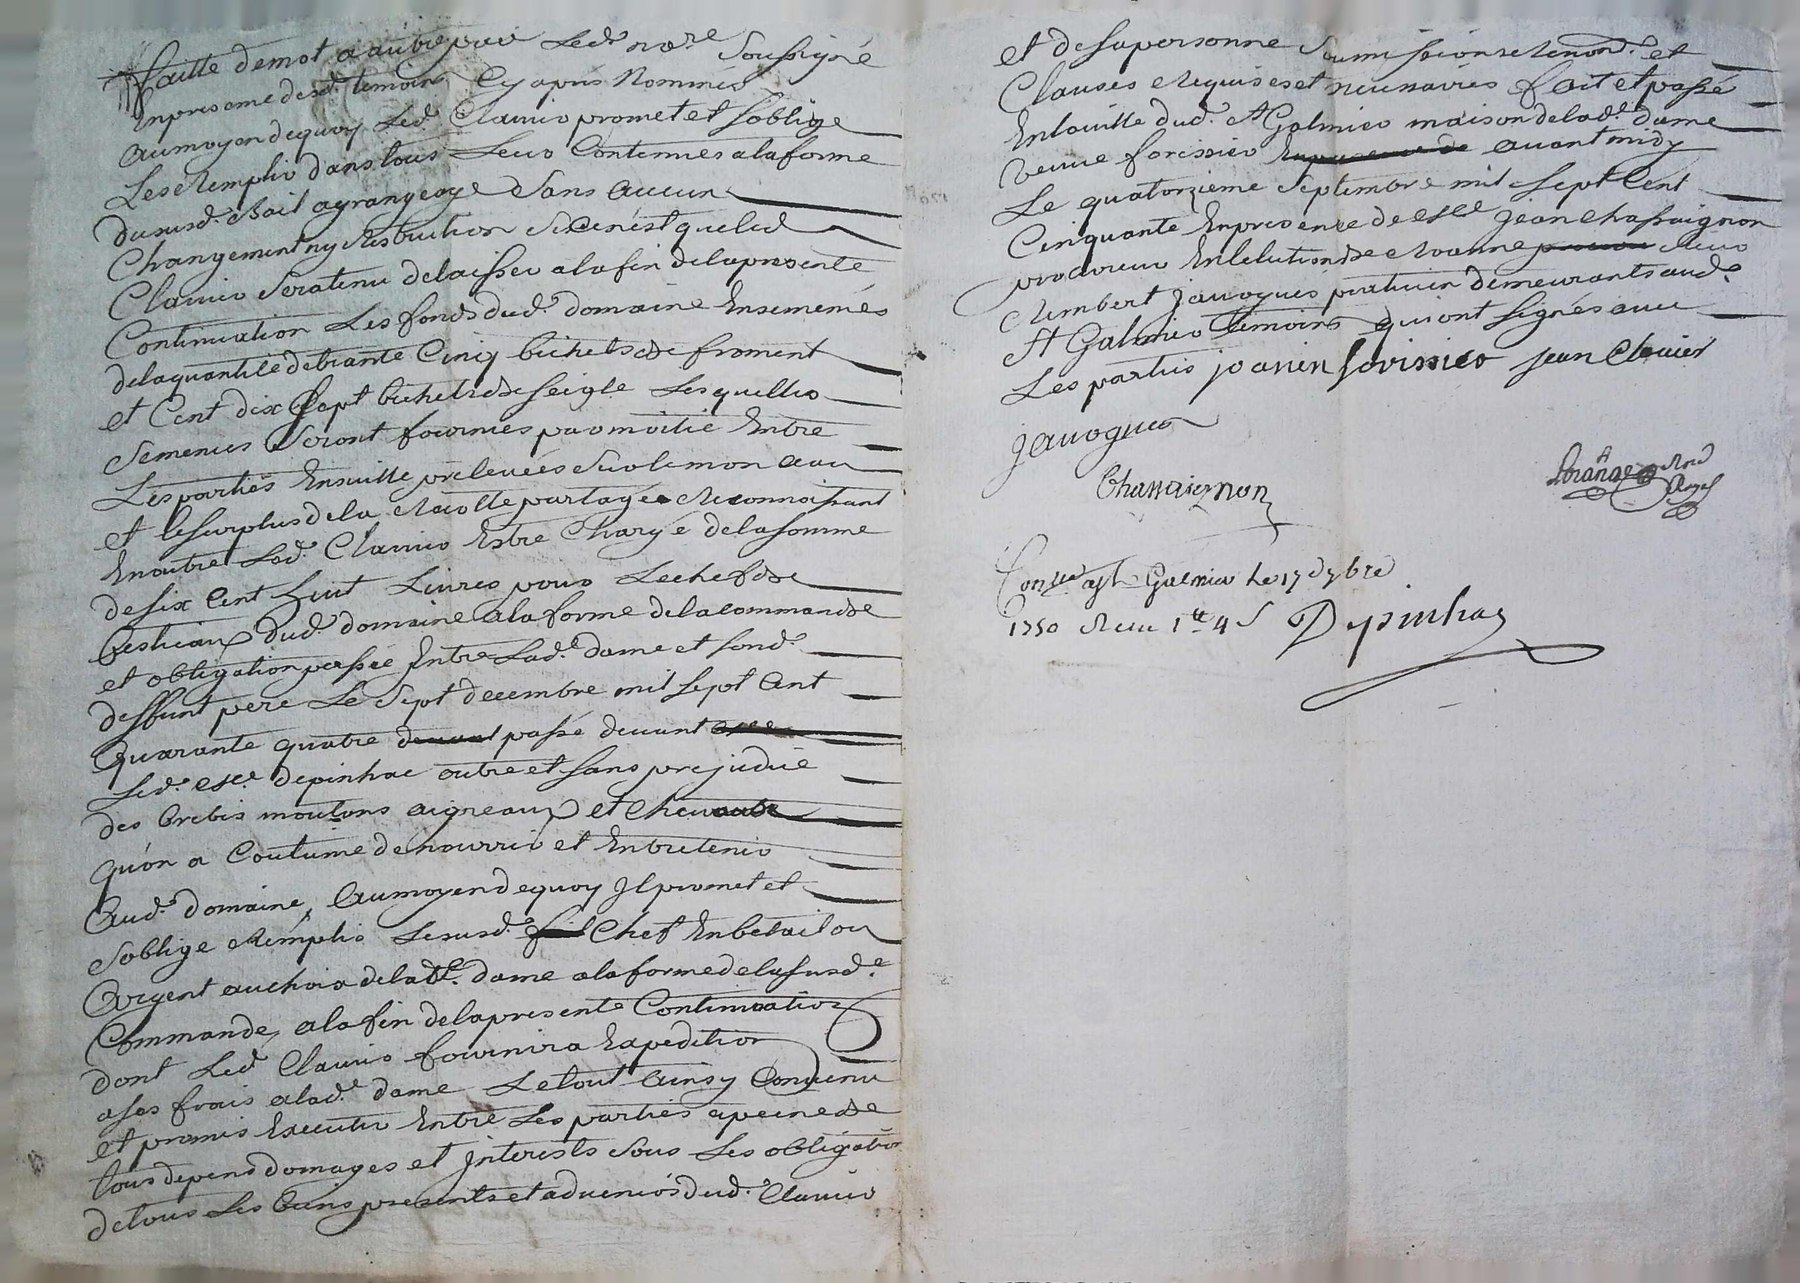 faitte demot a autre par Led.t no.re Soussigné
En presence desd. temoins Cy apres Nommés
aumoyen dequoy Led. Clavier promet et soblige
Les Remplir dans tous Leur Contenues a laforme
dususd. Bail agrangeage Sans aucun
Changement ny Restriction Sice nest queled
Clavier Seratenu delaisser a la fin delapresente
Continuation Les fonds dud. domaine Ensemencés
delaquantité detrante Cinq bichets de froment
et Cent dix sept bichets de seigle Lesquelles
Semences Seront fournies par moitié Entre
Lesparties Ensuitte prelevées Sur le monceau
et lesurplus de la Recolte partagée Reconnoissant
En outre Led. Clavier Estre Chargé delasomme
desix Cent huit Livres pour Lechef de
bestiaux dud. domaine a la forme de la commande
et obligation passée Entre Lad.e dame et sond.
deffunt pere Le Sept decembre mil sept Cent
quarante quatre devant passé devant
Led. me. depinhac outre et sans prejudice
des brebis moutons aigneaux et chevaux
quon a Coutume de nourrir et Entretenir
aud. domaine, aumoyen dequoy Il promet et
soblige Remplir Lesusd. Chef En betail ou
argent auchoix delad.e dame a la forme de la susd.e
Commande, a la fin de la presente Continuation
dont Led Clavier fournira Expedition
ases frais a lad.e dame Le tout ainsy Convenu
et promis Executer Entre Les parties apeine de
tous depens domages et Interests Sous Les obligation
detous Les biens presents et advenirs dud. Clavier
et desapersonne Soumissions renond. et
Clauses Requises et necessaires fait et passé
En la ville dud. St Galmier maison de lad.e dame
veuve forissier En presence de avant midy
Le quatorzieme Septembre mil sept Cent
Cinquante En presence de Me. jean Chassaignon
procureur En lelection de Roanne Sieur
Rimbert javogues praticien demeurants aud.
St Galmier temoins qui ont signés avec
Les parties joanin forissier jean Clavier
javogues
Chassaignon
Re Royal
Con.lle a St Galmier Le 17 d 7bre
1750 Receu 1 tt 4 s Depinhac